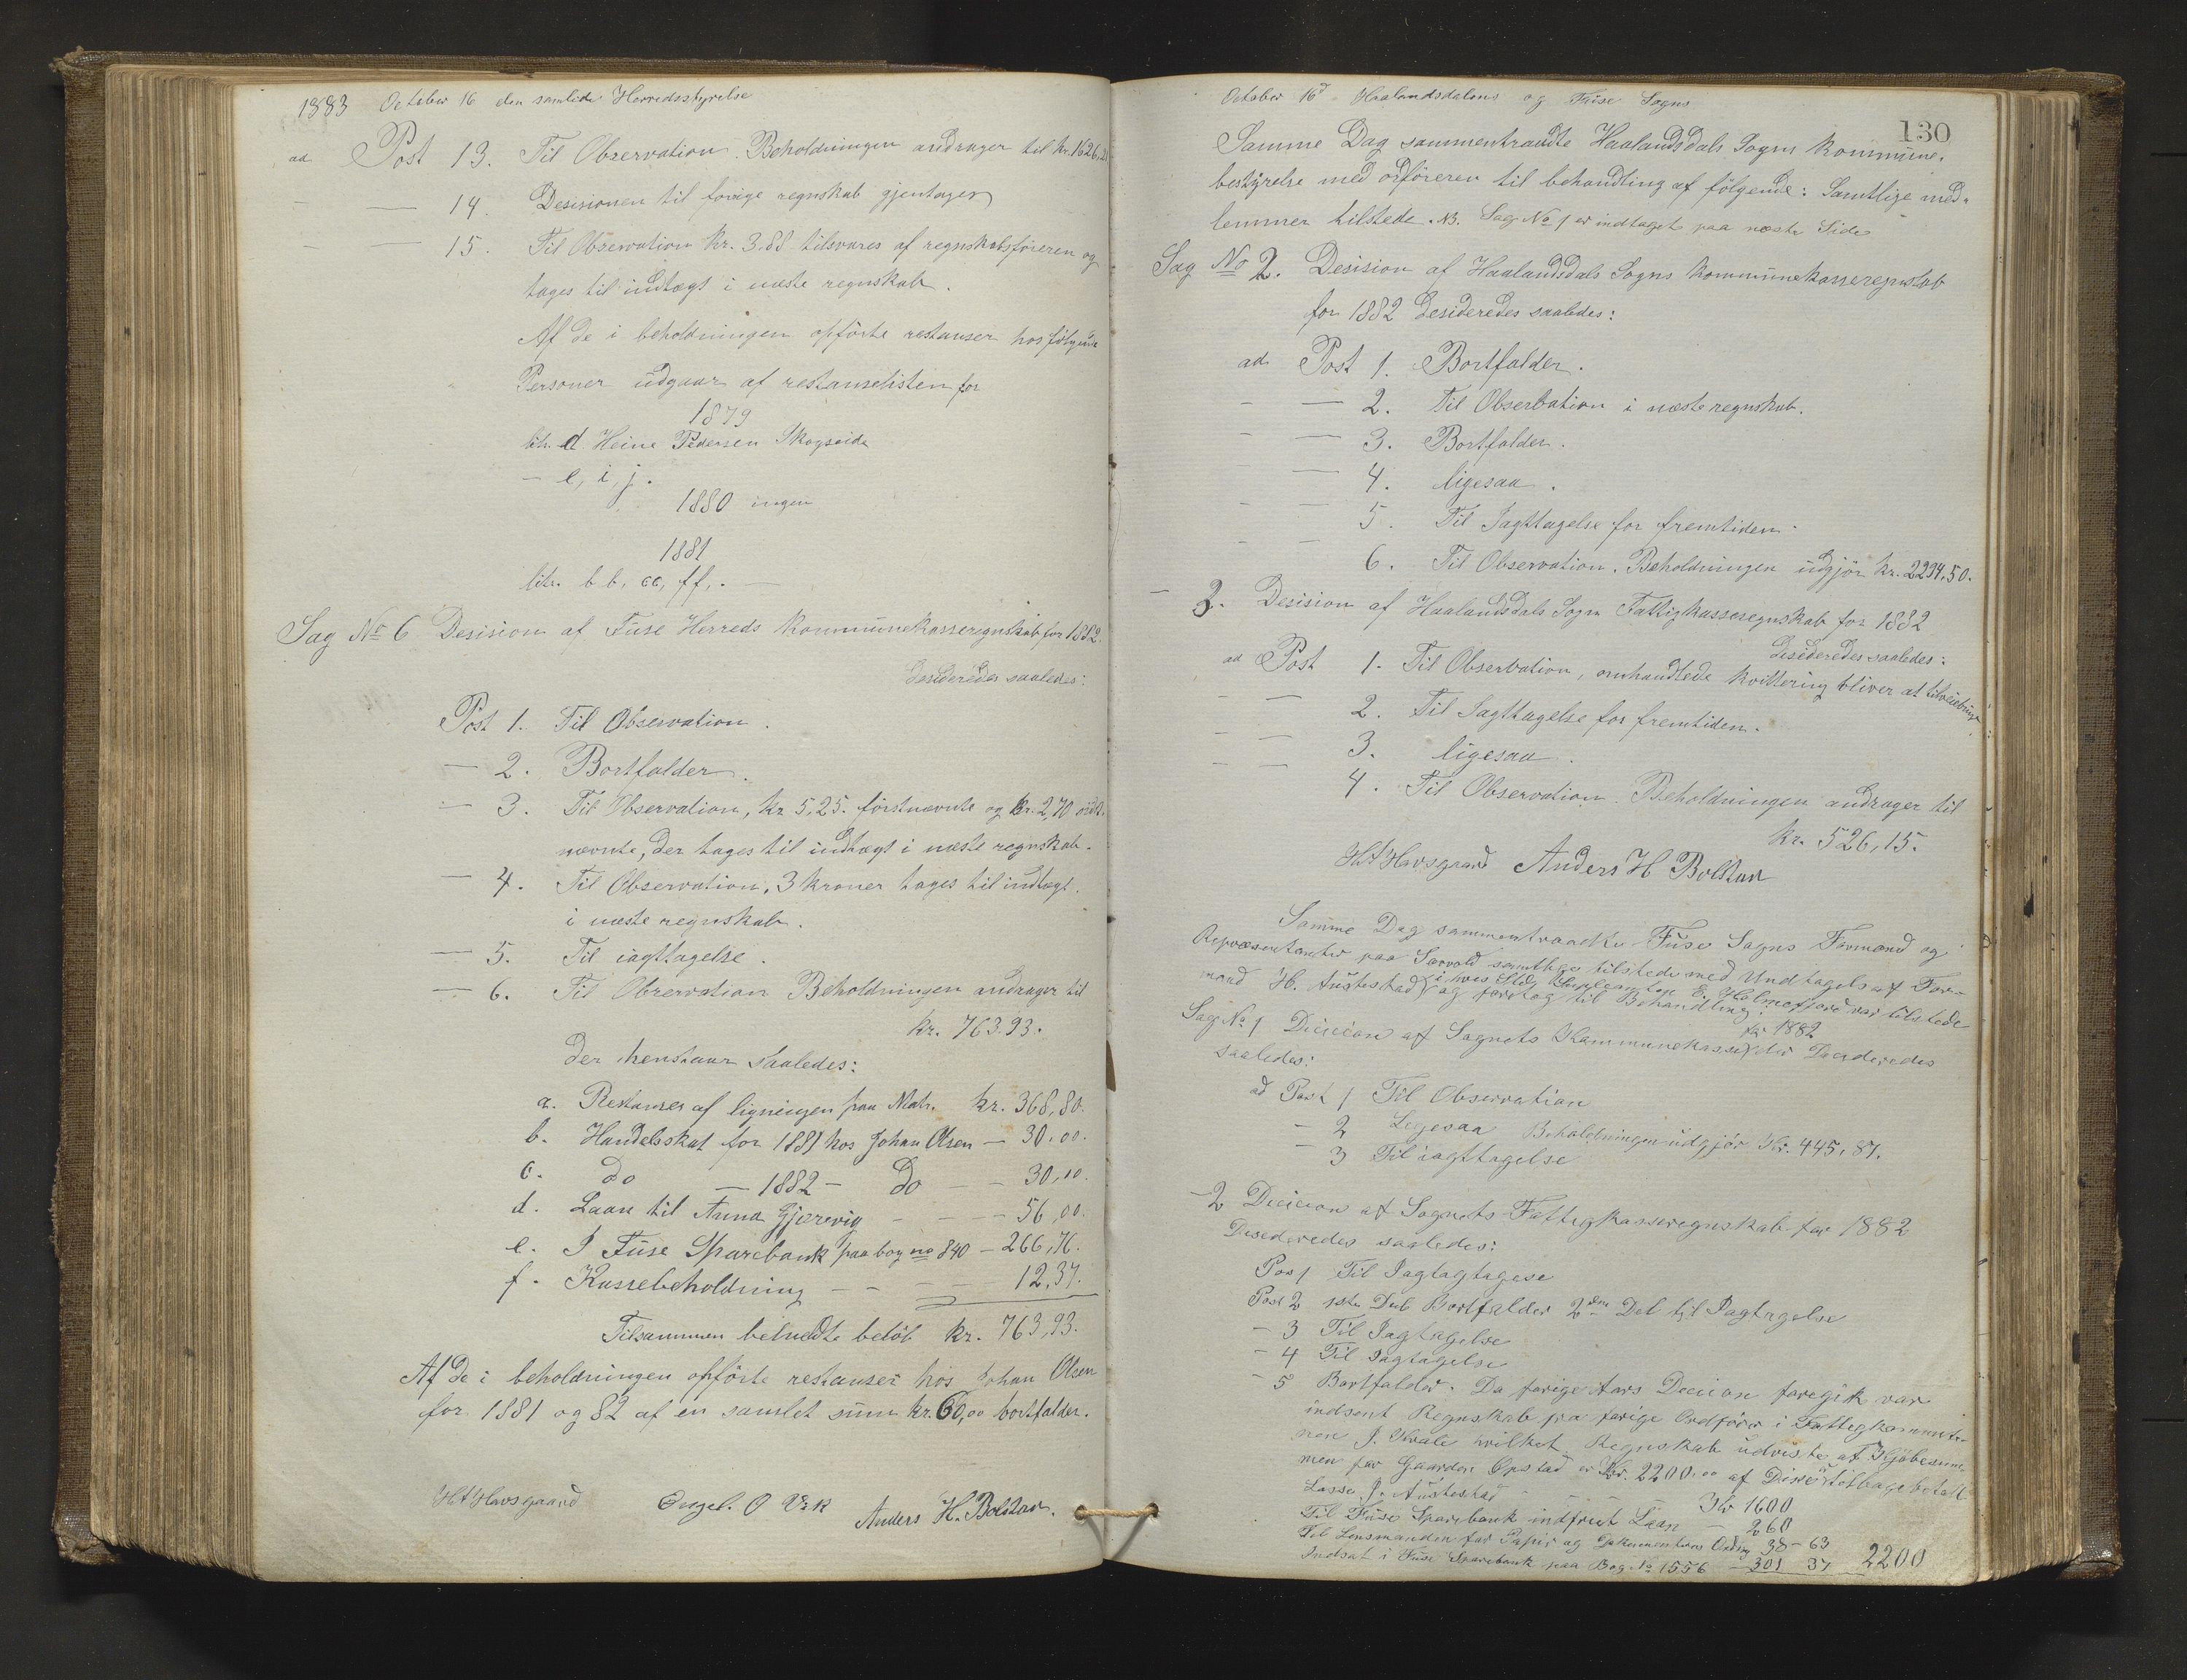 1883 October 16 den samlede Herredsstyrelse
ad Post 13. Til Observation. Beholdningen andrager til kr. 1626,21
— — 14. Desisionen til forrige regnskab gjentages
— — 15. Til Observation kr. 3.88 tilsvares af regnskabsföreren og
tages til indtægt i næste regnskab.
Af de i beholdningen opförte restanser hos fölgende
Personer udgaar af restanselisten for
1879
litr. d Heine Pedersen Skogseide
— e, i, j.
1880 ingen
1881
litr. bb, cc, ff.
Sag No 6 Desision af Fuse Herreds kommunekasseregnskab for 1882.
Desideredes saaledes:
Post 1. Til Observation.
— 2. Bortfalder.
— 3. Til Observation, kr 5,25. förstnævnte og kr. 2,70 sidst-
nævnte, der tages til indtægt i næste regnskab.
— 4. Til Observation, 3 kroner tages til indtægt
i næste regnskab.
— 5. Til iagttagelse.
— 6. Til Observation Beholdningen andrager til
kr. 763.93.
der henstaar saaledes:
a. Restanser af ligningen paa Matr. kr. 368,80.
b. Handelsskat for 1881 hos Johan Olsen — 30.00.
c. Do — 1882 — Do — — 30,00.
d. Laan til Anna Gjerevig — — — 56,00.
e. I Fuse Sparebank paa bog no 840 — 266,76.
f. Kassebeholdning — — — — 12,37.
Tilsammen belnedte belöb kr. 763,93.
Af de i beholdningen opförte restanser hos Johan Olsen
for 1881 og 82 af en samlet sum kr. 60,00 bortfalder.
HA Havsgaard Engel. O Vik Anders H. Bolstad.
October 16d Haalandsdalens og Fuse Sogns
130
Samme Dag sammentraadte Haalandsdals Sogns kommune-
bestyrelse med ordföreren til behandling af fölgende: Samtlige med-
lemmer tilstede. NB. Sag No 1 er indtaget paa næste Side
Sag No 2. Desision af Haalandsdals Sogns kommunekasseregnskab
for 1882 desideredes saaledes:
ad Post 1. Bortfalder.
— — 2. Til Observation i næste regnskab.
— — 3. Bortfalder.
— — 4. ligesaa.
— — 5. Til Iagttagelse for fremtiden.
— — 6. Til Observation. Beholdningen udgjör kr. 2294,50.
— 3. Desision af Haalandsdals Sogn Fattigkasseregnskab for 1882
desideredes saaledes:
ad Post 1. Til Observation, omhandlede kvittering bliver at tilveiebringe
— — 2. Til Iagttagelse for fremtiden.
— — 3. ligesaa.
— — 4. Til Observation. Beholdningen andrager til
kr. 526,15.
HA Havsgaard Anders H Bolstad
Samme Dag sammentraadte Fuse Sogns Formænd og
Repræsentanter paa Sævold samtlige tilstede med Undtagelse af For-
mand H. Austestad i hvis Sted Supleanten E. Holmefjord var tilstede
og foretog til Behandling:
Sag No 1 Dicision af Sognets Kommunekasse for 1882 der Desideredes
saaledes:
ad Post 1 Til Observation
— 2 Legesaa Beholdningen udgjör Kr. 445,87.
— 3 Til iagttagelse
— 2 Dicision af Sognets Fattigkasseregnskab for 1882
Desideredes saaledes:
Pos 1 Til Iagtagtagese
Post 2 1ste Del Bortfalder 2den Del til Iagtagelse
— 3 Til Iagtagelse
— 4 Til Iagtagelse
— 5 Bortfalder. Da forige Aars Decision foregik var
indsent Regnskab fra forige Ordförer i Fattigkommis-
nen J. Kvale hvilket Regnskab udviste at Kjöbesum-
men for Gaarden Opstad er Kr. 2200.00 af Disse er tilbagebetalt
Lasse J. Austestad — — — Kr 1600
Til Fuse Sparebank indfriet Laan — 260
Til Lensmanden for Papir og Dokumenters Ording 38-63
Indsat i Fuse Sparebank paa Bog No 1556 — 301 37 2200